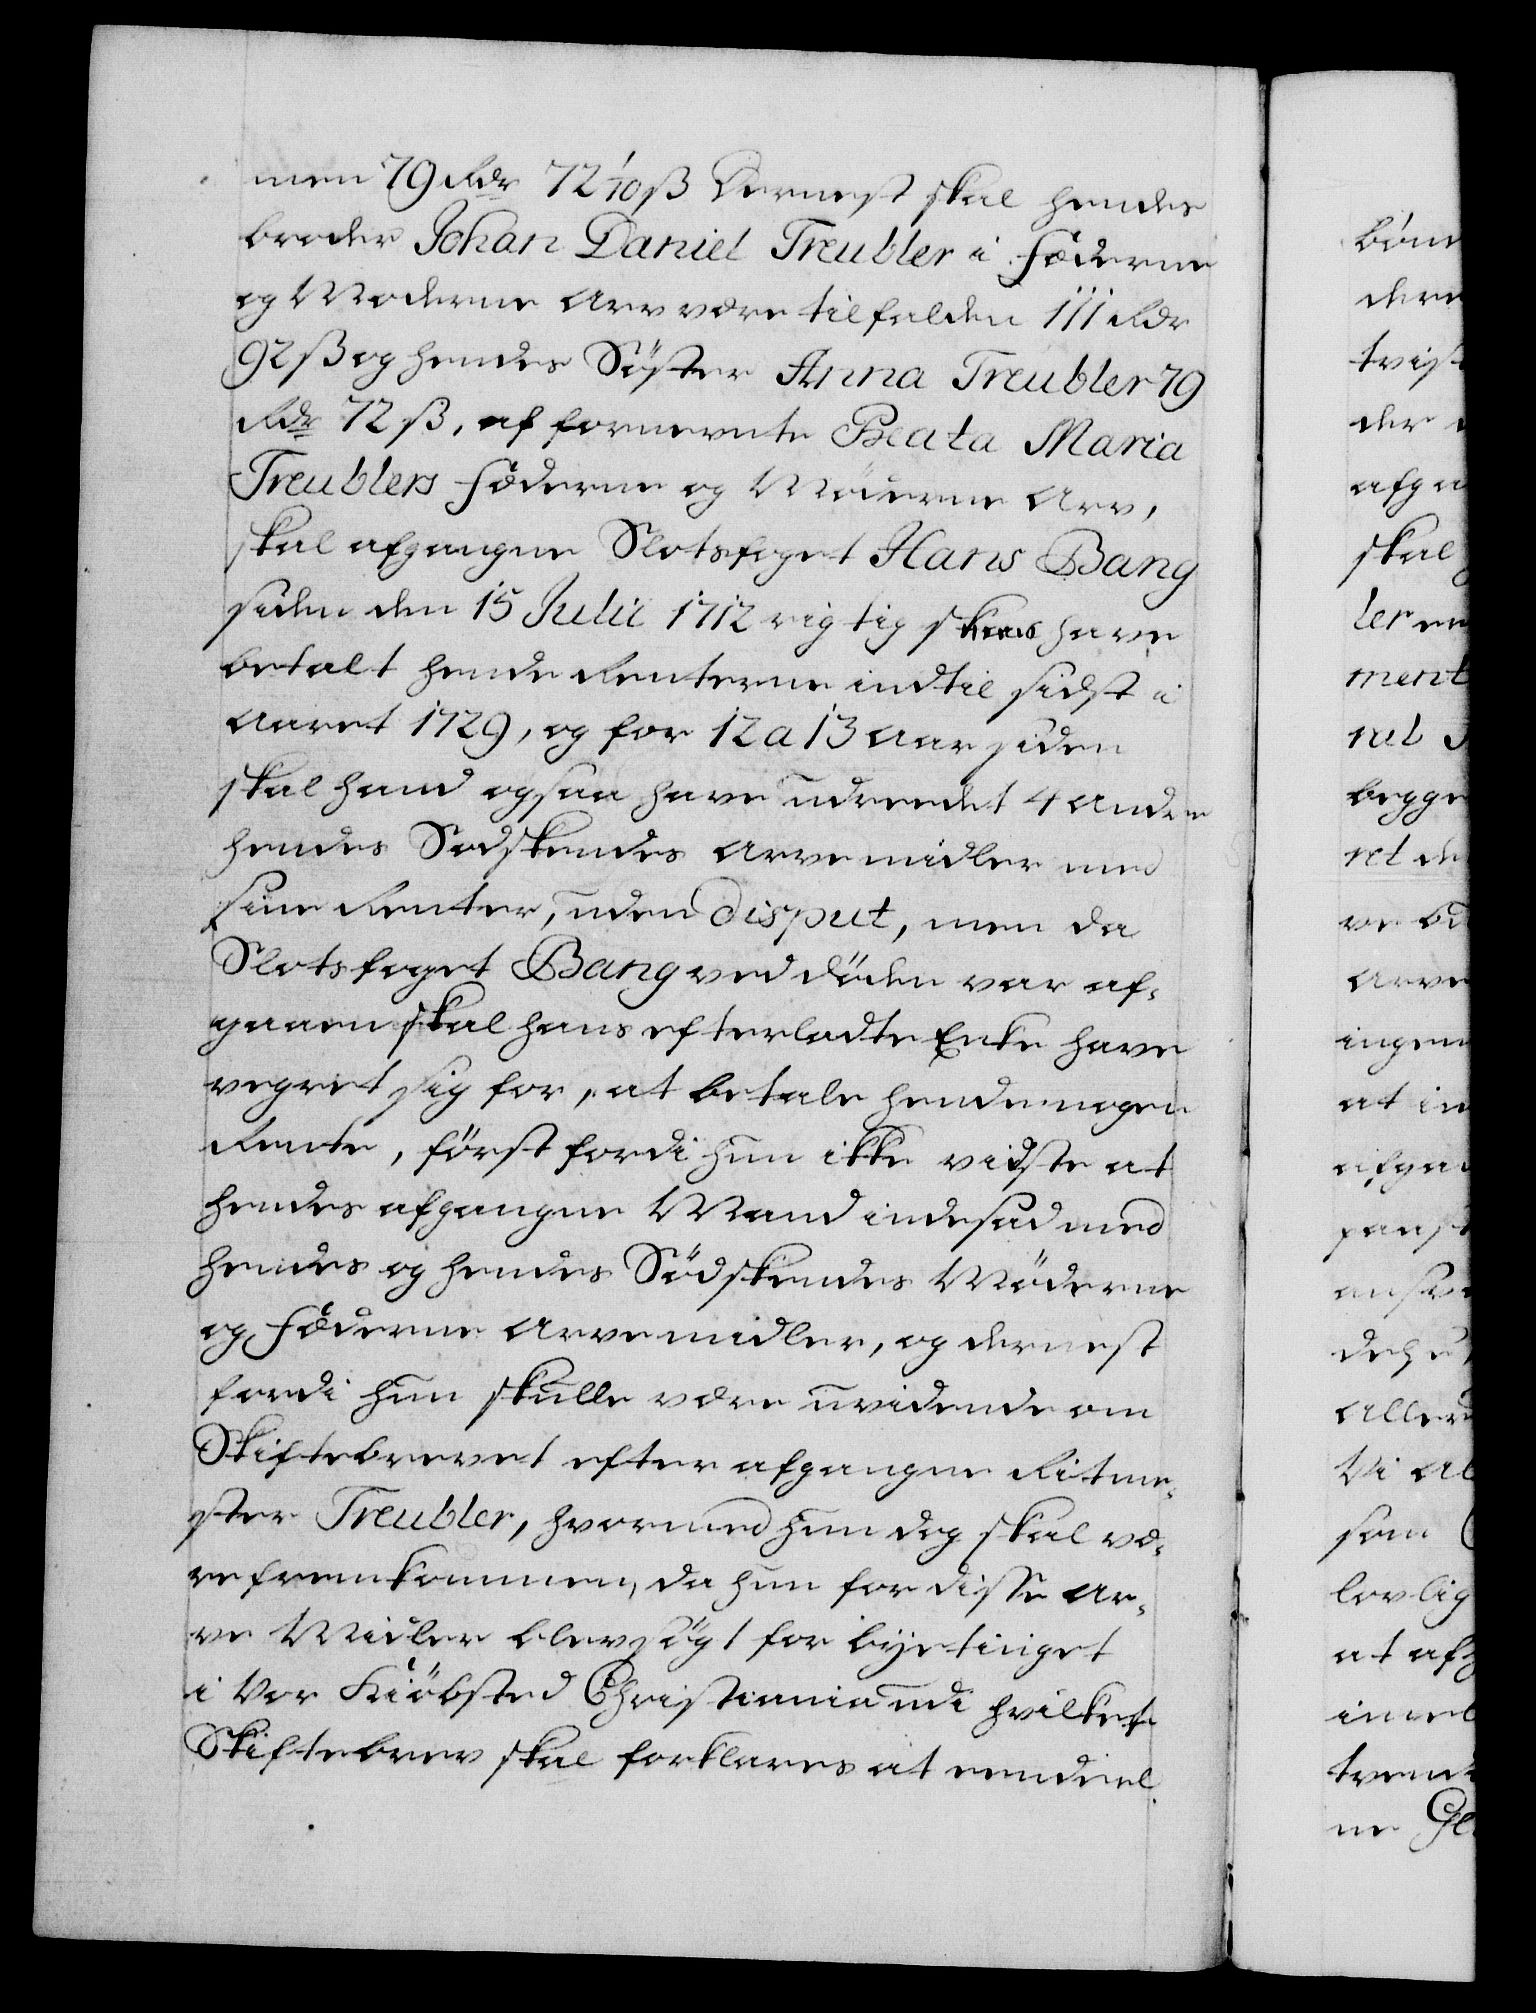 men 79 Rdr 72 1/10 ß Dernest skal hendes
broder Johan Daniel Treubler i Fæderne
og Moderne Arv være tilfalden 111 Rdr
92 ß og hendes Söster Anna Treubler 79
Rdr 72 ß, af fornevnte Beata Maria
Treublers Fæderne og Möderne Arv,
skal afgangne Slotsfoget Hans Bang
siden den 15 Julii 1712 rigtig have
betalt hende Renterne indtil sidst i
Aaret 1729, og for 12 a 13 Aar siden
skal hand ogsaa have udreedet 4 andre
hendes Sødskendes Arvemidler med
sine Renter, uden disput, men da
Slotsfoget Bang ved döden var af-
gaaen skal hans efterladte Enke have
vegret sig for, at betale hende nogen
Rente, först fordi hun ikke vidste at
hendes afgangne Mand indesad med
hendes og hendes Södskendes Möderne
og Fæderne Arvemidler, og dernest
fordi hun skulle være uvidende om
Skiftebrevet efter afgangne Ritme-
ster Treubler, hvormed hun dog skal væ-
re fremkommen, da hun for disse Ar-
ve Midler blev søgt for byetinget
i Vor Kiöbsted Christiania udi hvilket
Skiftebrev skal forklares at eendeel